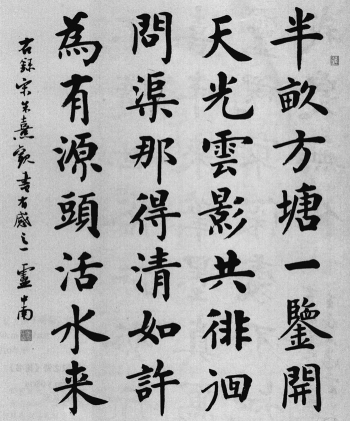 半畝方塘一鑒開
天光雲影共徘徊
問渠那得清如許
為有源頭活水来
右錄宋朱熹觀書有感之一 盧中南